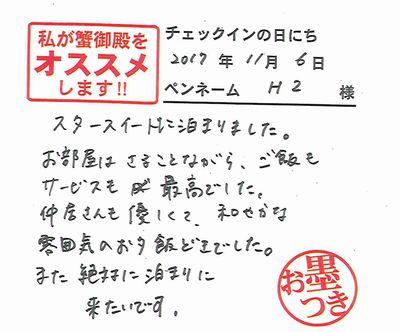 私が蟹御殿を
オススメ
します!!
チェックインの日にち
2017 年 11月 6日
ペンネーム H2 様
スタースイートに泊まりました。
お部屋はさることながら、ご飯も
サービスも 最高でした。
仲居さんも優しくて、和やかな
雰囲気のお夕飯どきでした。
また絶対に泊まりに
来たいです。
お墨
つき